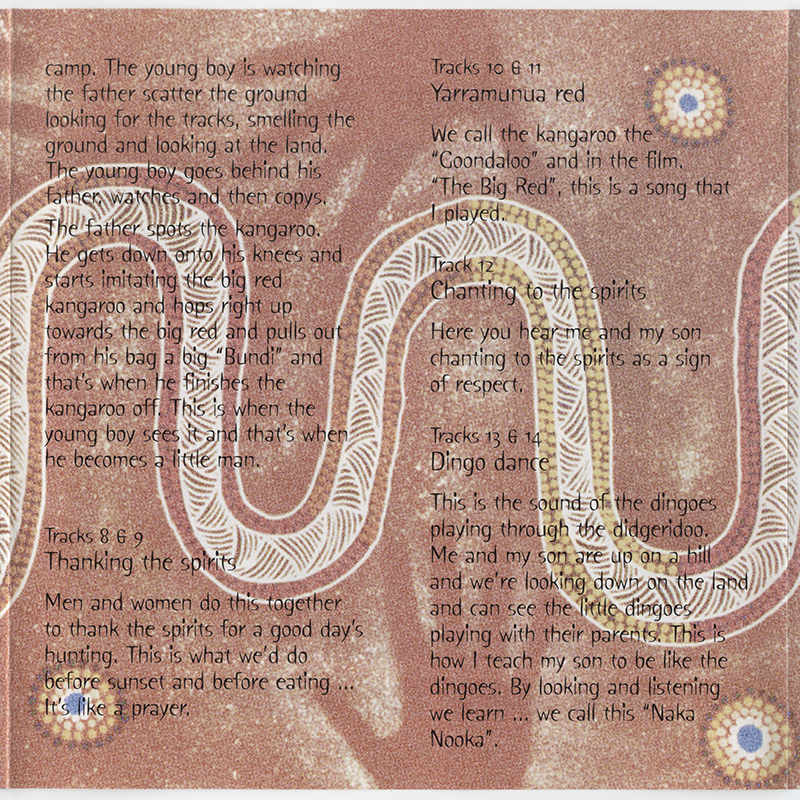 camp. The young boy is watching
the father scatter the ground
looking for the tracks, smelling the
ground and looking at the land.
The young boy goes behind his
father, watches and then copys.
The father spots the kangaroo.
He gets down onto his knees and
starts imitating the big red
kangaroo and hops right up
towards the big red and pulls out
from his bag a big "Bundi" and
that's when he finishes the
kangaroo off. This is when the
young boy sees it and that's when
he becomes a little man.
Tracks 8 & 9
Thanking the spirits
Men and women do this together
to thank the spirits for a good day's
hunting. This is what we'd do
before sunset and before eating ...
It's like a prayer.
Tracks 10 & 11
Yarramunua red
We call the kangaroo the
"Goondaloo" and in the film,
"The Big Red", this is a song that
I played.
Track 12
Chanting to the spirits
Here you hear me and my son
chanting to the spirits as a sign
of respect.
Tracks 13 & 14
Dingo dance
This is the sound of the dingoes
playing through the didgeridoo.
Me and my son are up on a hill
and we're looking down on the land
and can see the little dingoes
playing with their parents. This is
how I teach my son to be like the
dingoes. By looking and listening
we learn ... we call this "Naka
Nooka".